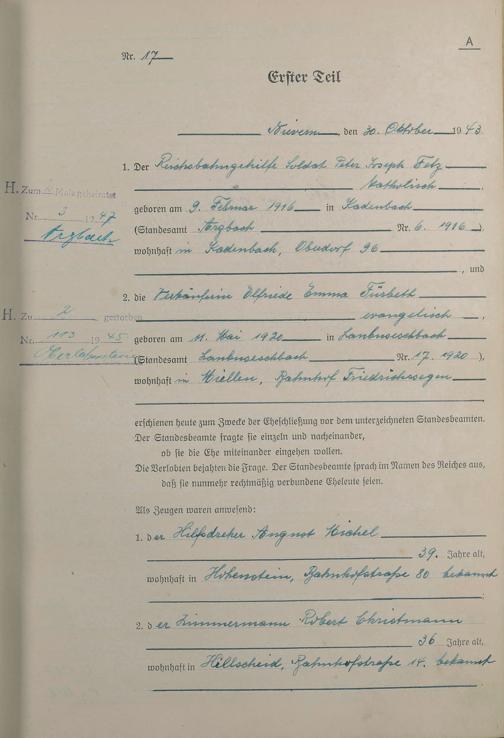 A
Nr. 17
Erster Teil
Nievern, den 30. Oktober 1943
1. Der Reichsbahngehilfe Soldat Peter Joseph Fetz
katholisch
geboren am 9. Februar 1916 in Kadenbach
(Standesamt Arzbach Nr. 6. 1916),
wohnhaft in Kadenbach, Oberdorf 96
, und
2. die Verkäuferin Elfriede Emma Fürbeth
evangelisch
geboren am 11. Mai 1920 in
(Standesamt Nr. 17. 1920),
wohnhaft in Miellen, Bahnhof Friedrichssegen
erschienen heute zum Zwecke der Eheschließung vor dem unterzeichneten Standesbeamten.
Der Standesbeamte fragte sie einzeln und nacheinander,
ob sie die Ehe miteinander eingehen wollen.
Die Verlobten bejahten die Frage. Der Standesbeamte sprach im Namen des Reiches aus,
daß sie nunmehr rechtmäßig verbundene Eheleute seien.
Als Zeugen waren anwesend:
1. der Hilfsdreher August Michel
39. Jahre alt,
wohnhaft in Hohenstein, Bahnhofstraße 80 bekannt
2. der Zimmermann Robert Christmann
36 Jahre alt,
wohnhaft in Hillscheid, Bahnhofstraße 14. bekannt
H. Zum 2 Mals geheiratet
Nr. 3 1947
Arzbach
H. Zu 2 gestorben
Nr. 113 1945